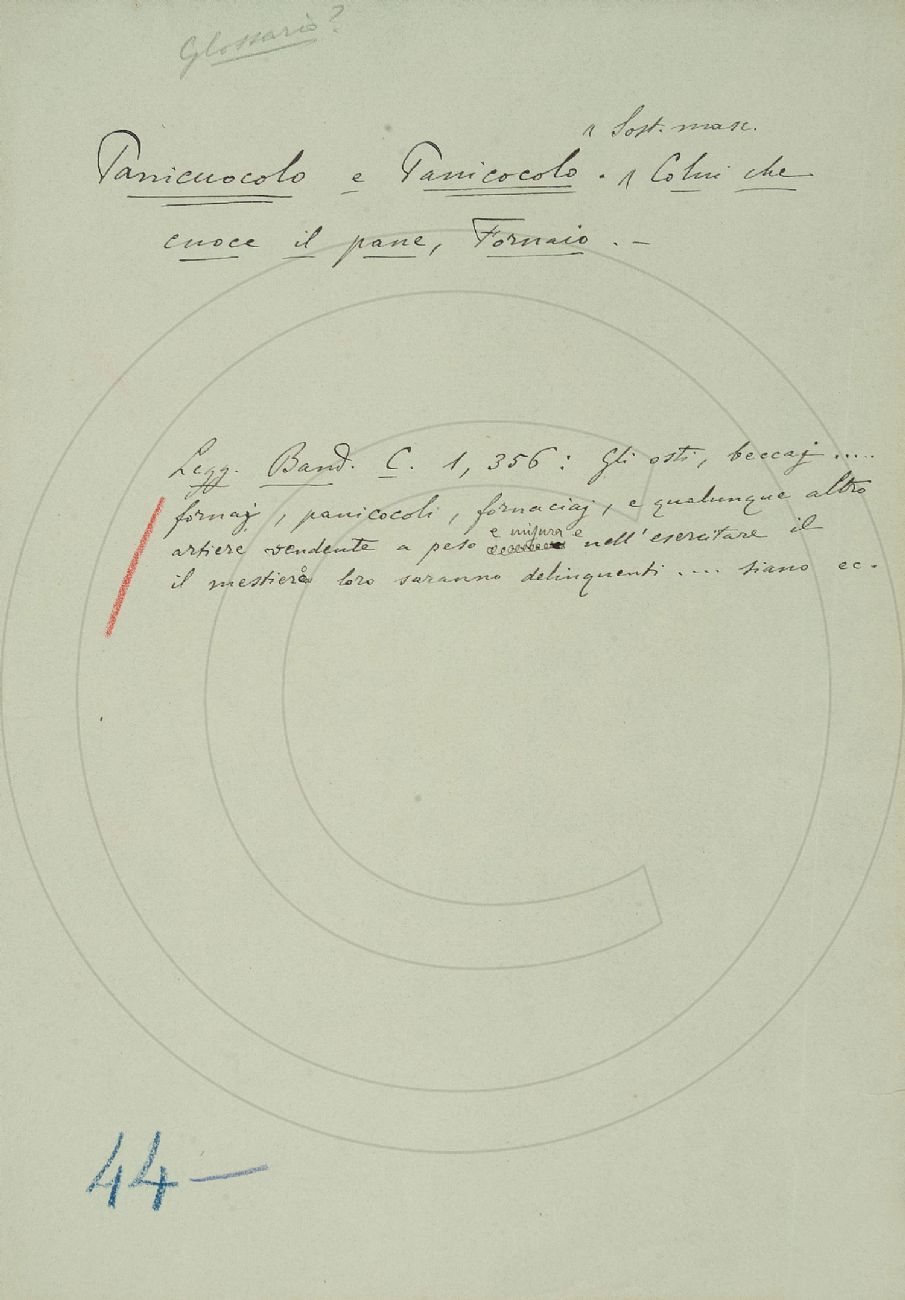 Glossario?
Sost. masc.
Panicuocolo e Panicocolo. Colui che
cuoce il pane, Fornaio. –
Legg. Band. C. 1, 356: Gli osti, beccaj ....
fornaj, panicocoli, fornaciaj, e qualunque altro
artiere vendente a peso e misura e nell'esercitare il
il mestiere loro saranno delinquenti .... siano ec.
44 –